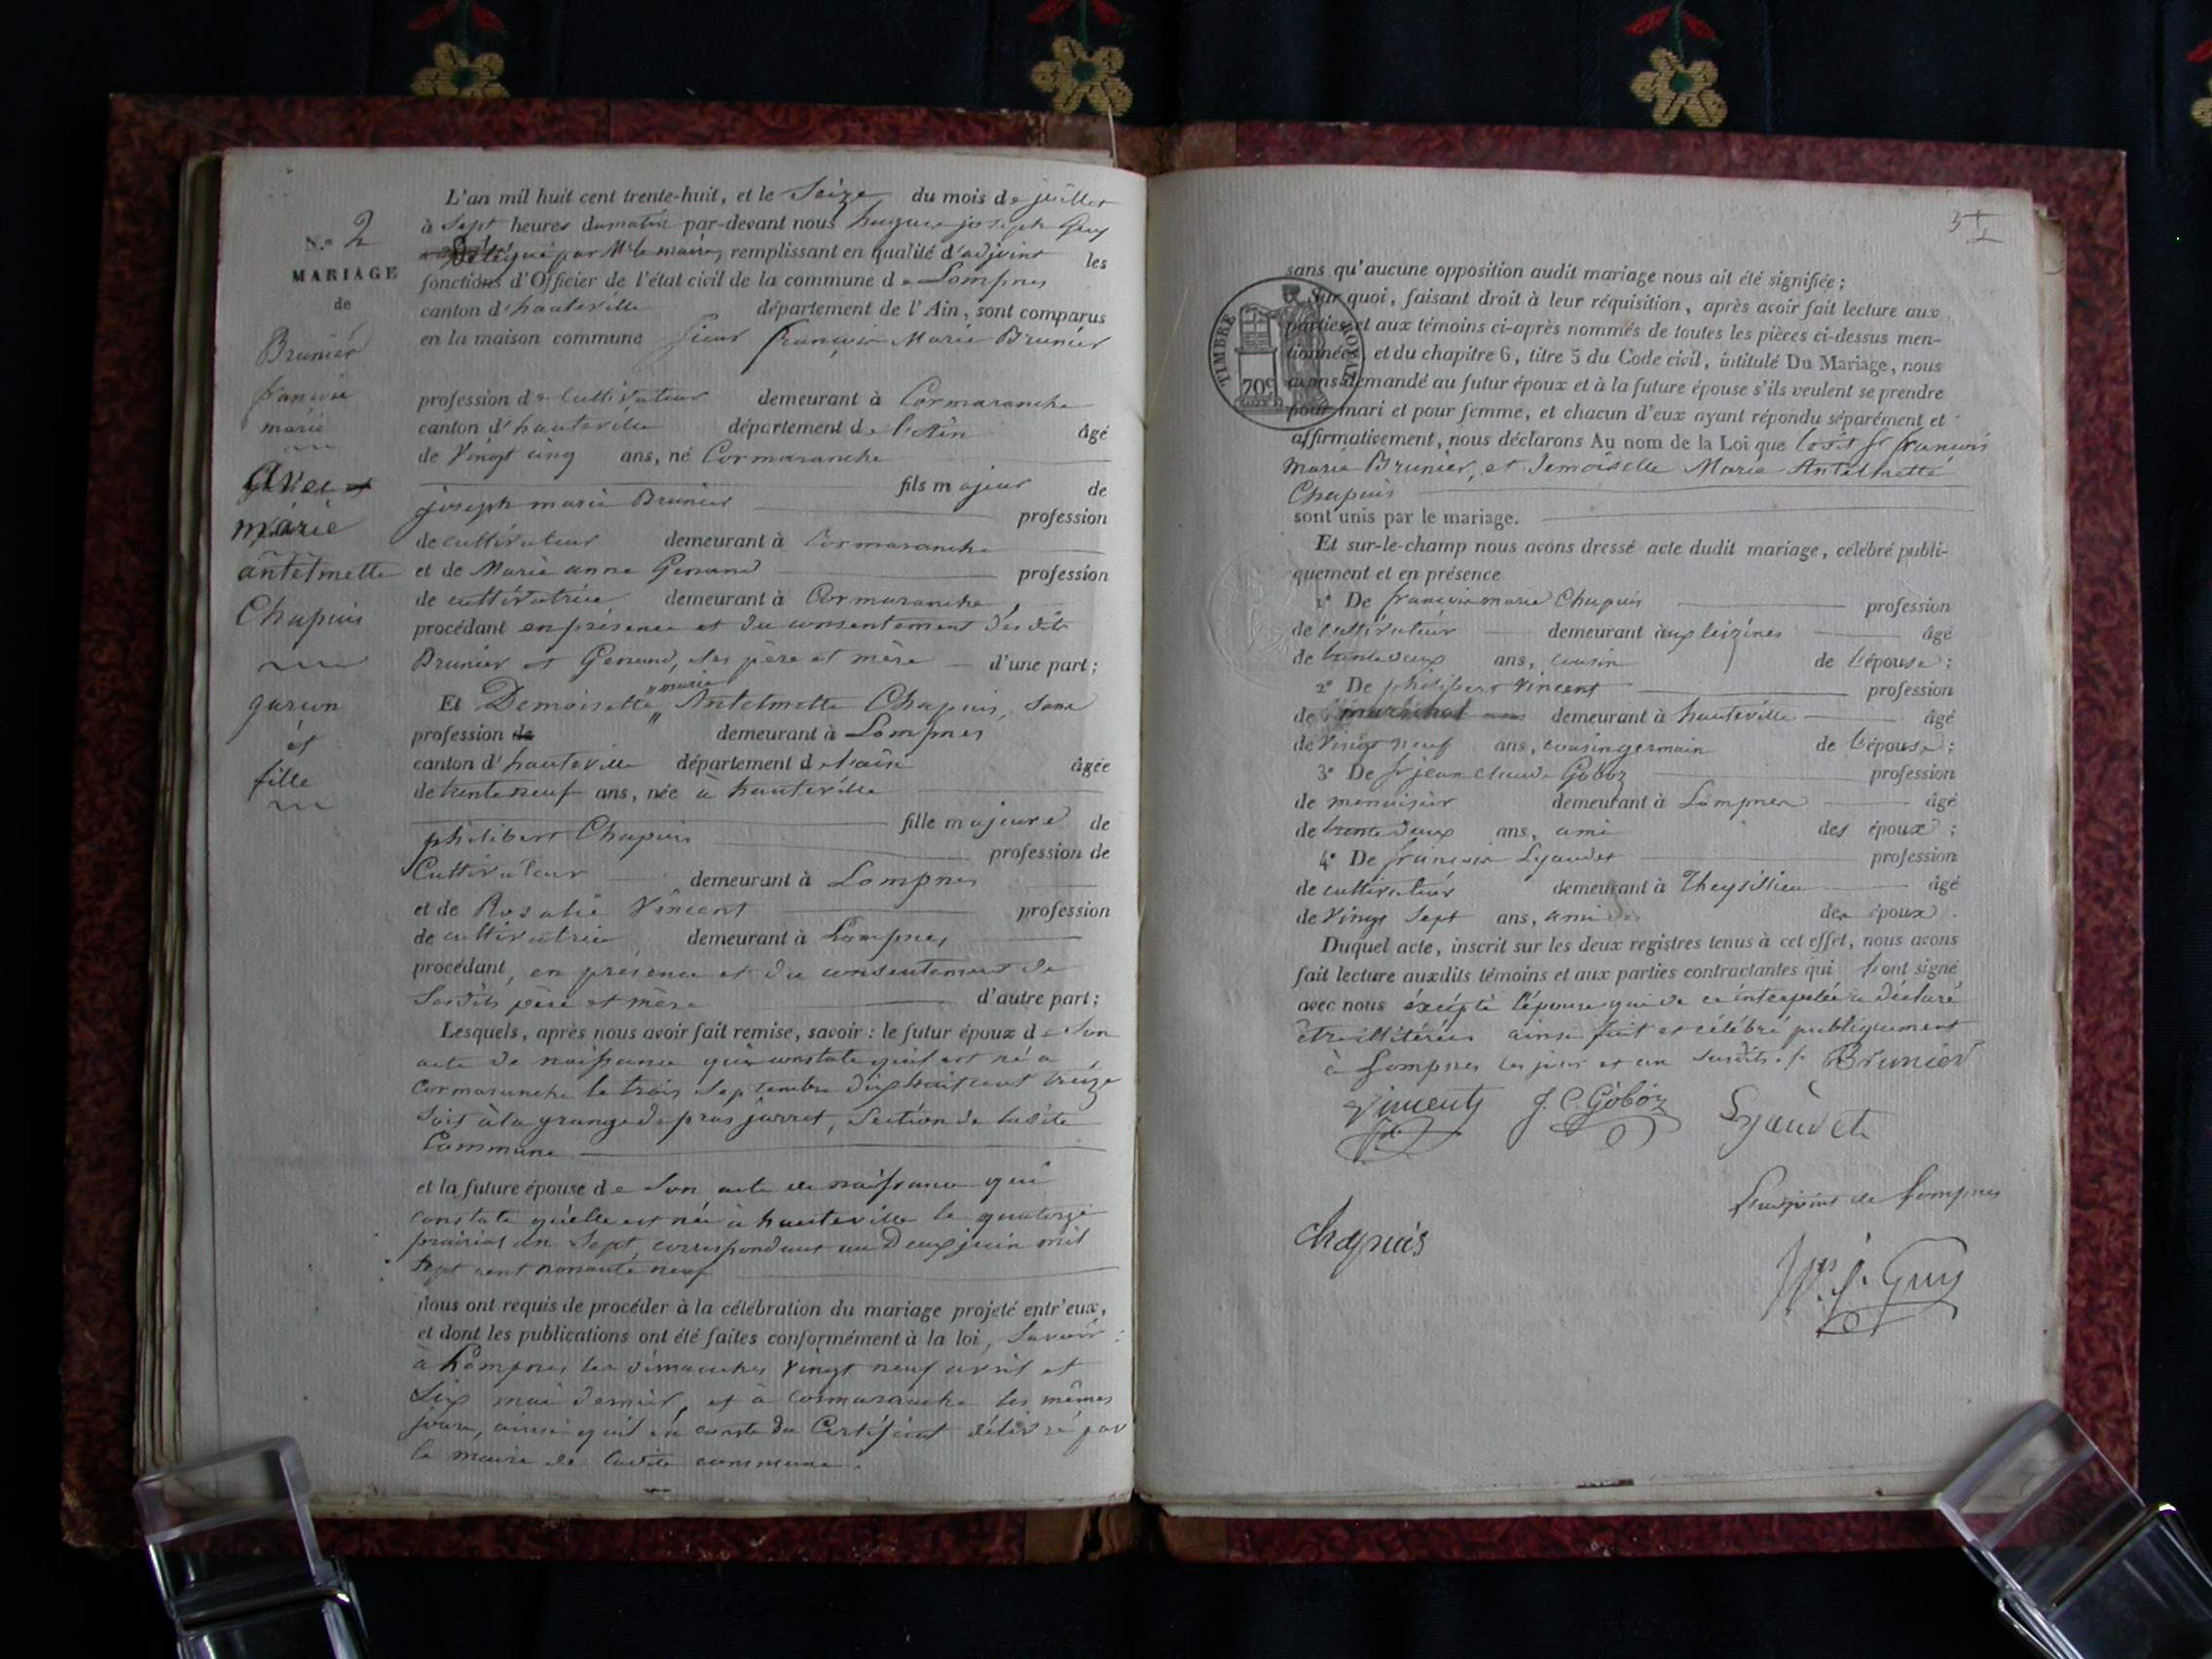 L'an mil huit cent trente-huit, et le Seize du mois de juillet
à Sept heures du matin par-devant nous hugues joseph Guy
Délégué par Mr le maire, remplissant en qualité d'adjoint les
fonctions d'Officier de l'état civil de la commune de Lompnes
canton d'hauteville département de l'Ain, sont comparus
en la maison commune Sieur françois Marie Brunier
profession de Cultivateur demeurant à Cormaranche
canton d'hauteville département de l'Ain âgé
de Vingt cinq ans, né Cormaranche
fils majeur de
joseph marie Brunier
profession
de cultivateur demeurant à Cormaranche
et de Marie anne Genand profession
de cultivatrice demeurant à Cormaranche
procédant en présence et du consentement desdits
Brunier et Genand, ses père et mère d'une part;
Et Demoiselle "marie" Antelmette Chapuis, sans
profession de demeurant à Lompnes
canton d'hauteville département de l'ain âgée
de trente neuf ans, née à hauteville
fille majeure de
philibert Chapuis
profession de
Cultivateur demeurant à Lompnes
et de Rosalie Vincent profession
de cultivatrice demeurant à Lompnes
procédant, en présence et du consentement de
Sesdits père et mère d'autre part;
Lesquels, après nous avoir fait remise, savoir : le futur époux de Son
acte de naissance qui constate qu'il est né à
Cormaranche le trois Septembre dix huit cent treize
soit à la grange de pras jarret, Section de ladite
Commune
et la future épouse de Son acte de naissance qui
constate qu'elle est née à hauteville le quatorze
prairial an Sept, correspondant au Deux juin mil
Sept cent nonante neuf
nous ont requis de procéder à la célébration du mariage projeté entr'eux,
et dont les publications ont été faites conformément à la loi, Savoir :
à Lompnes les dimanches Vingt neuf avril et
Six mai dernier, et à Cormaranche les mêmes
jours, ainsi qu'il en conste du Certificat délivré par
le maire de ladite commune.
N.o 2
MARIAGE
de
Brunier
françois
marie
Avec
marie
antelmette
Chapuis
garçon
et
fille
sans qu'aucune opposition audit mariage nous ait été signifiée;
Sur quoi, faisant droit à leur réquisition, après avoir fait lecture aux
parties et aux témoins ci-après nommés de toutes les pièces ci-dessus men-
tionnées, et du chapitre 6, titre 5 du Code civil, intitulé Du Mariage, nous
avons demandé au futur époux et à la future épouse s'ils veulent se prendre
pour mari et pour femme, et chacun d'eux ayant répondu séparément et
affirmativement, nous déclarons Au nom de la Loi que françois
marie Brunier, et demoiselle Marie Antelmette
Chapuis
sont unis par le mariage.
Et sur-le-champ nous avons dressé acte dudit mariage, célébré publi-
quement et en présence
1° De françois marie Chapuis profession
de cultivateur demeurant aux leizines âgé
de trente deux ans, cousin de l'épouse;
2° De philibert Vincent profession
de maréchal demeurant à hauteville âgé
de Vingt neuf ans, cousin germain de l'épouse;
3° De Sr jean claude Goboz profession
de menuisier demeurant à Lompnes âgé
de trente deux ans, ami des époux;
4° De françois Lyaudet profession
de cultivateur demeurant à Theysillieu âgé
de Vingt Sept ans, ami des époux.
Duquel acte, inscrit sur les deux registres tenus à cet effet, nous avons
fait lecture auxdits témoins et aux parties contractantes qui l'ont signé
avec nous excepté l'épouse qui de ce interpelée a déclaré
être illitérée ainsi fait et célébré publiquement
à Lompnes les jour et an Susdits. f. Brunier
Vincent J. C. Goboz Lyaudet
L'adjoint de Lompnes
Chapuis
J. Guy
TIMBRE ROYAL
70c